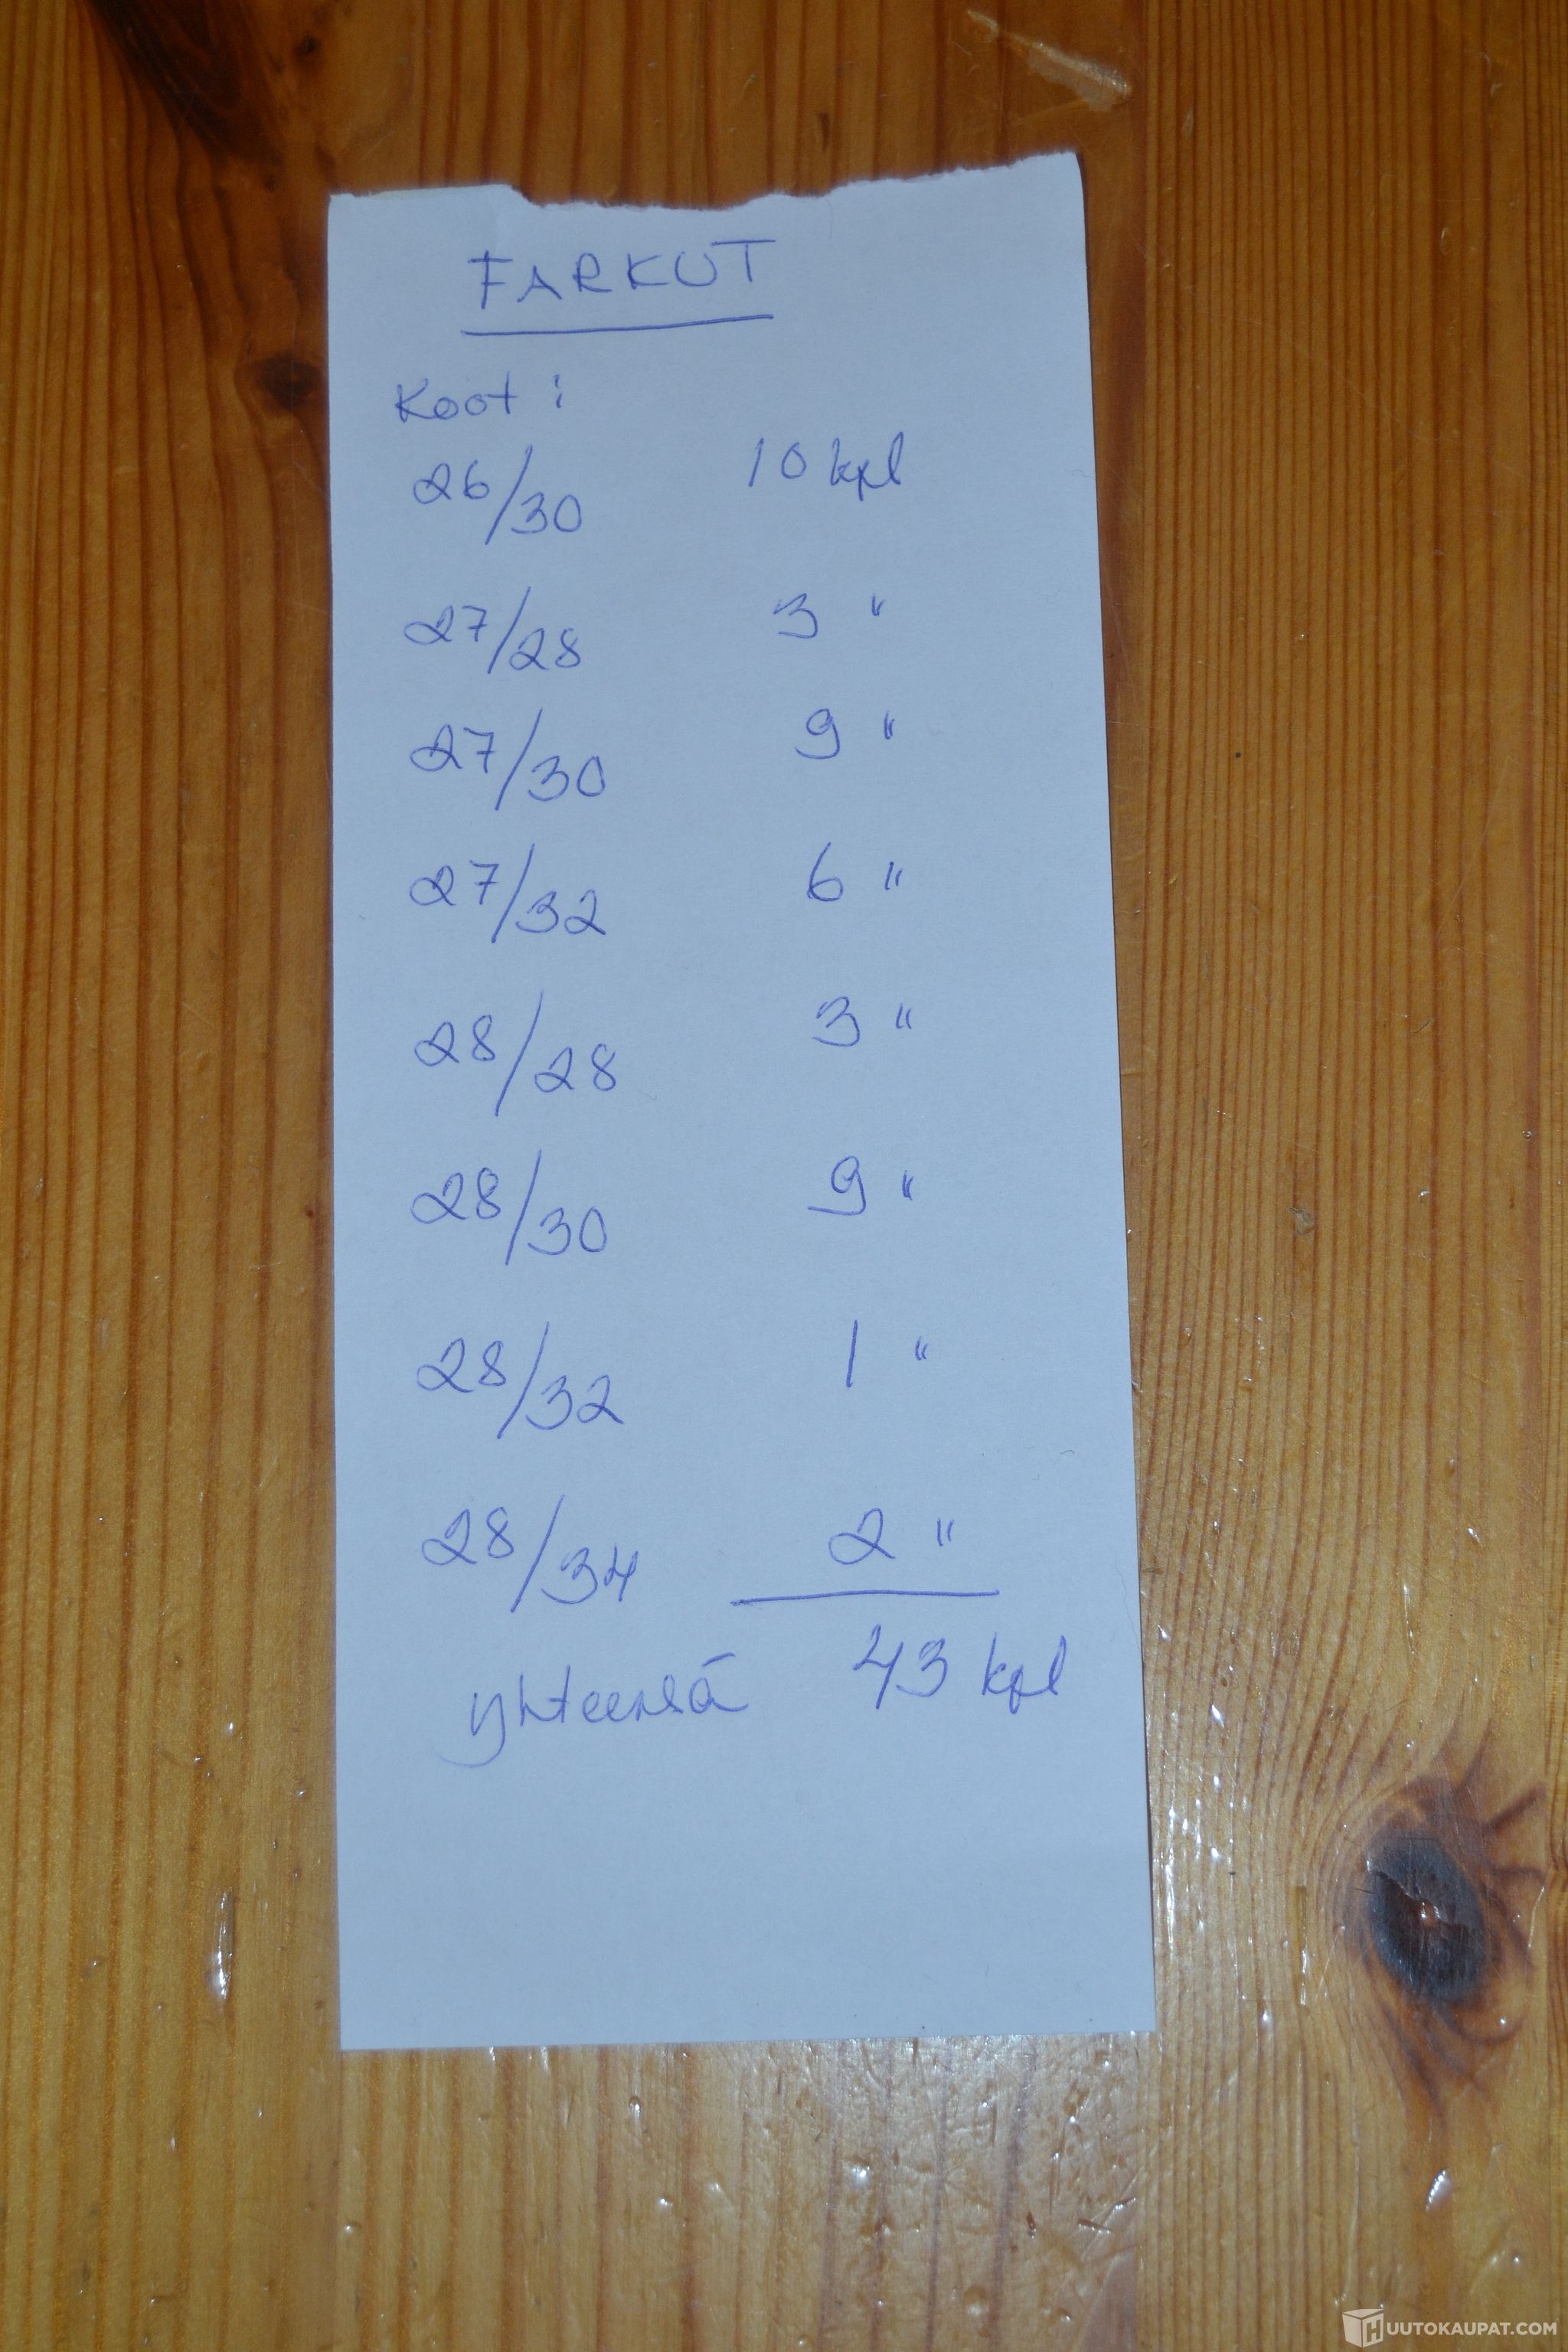 FARKUT
Koot :
26/30 10 kpl
27/28 3 "
27/30 9 "
27/32 6 "
28/28 3 "
28/30 9 "
28/32 1 "
28/34 2 "
yhteensä 43 kpl
HUUTOKAUPAT.COM